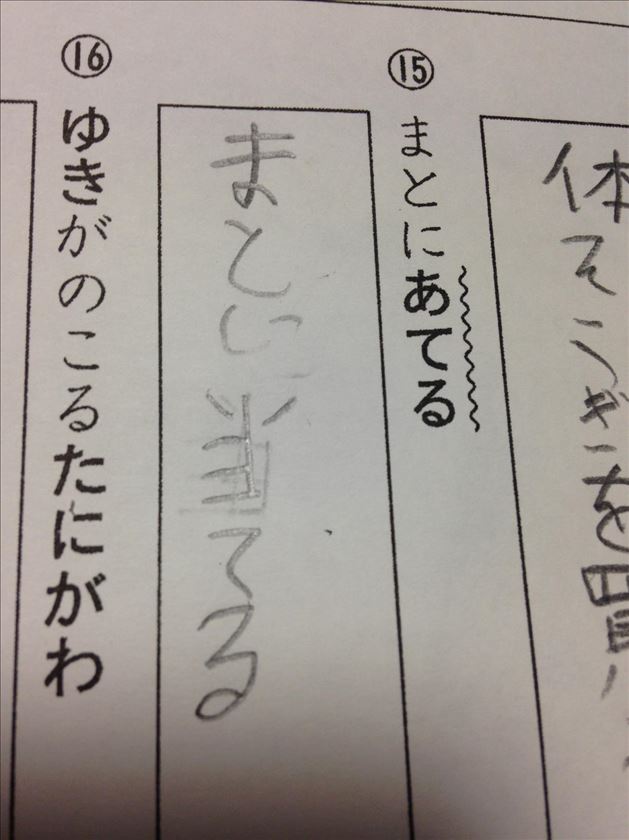 体そうぎを買
⑮ まとにあてる
まとに当てる
⑯ ゆきがのこるたにがわ